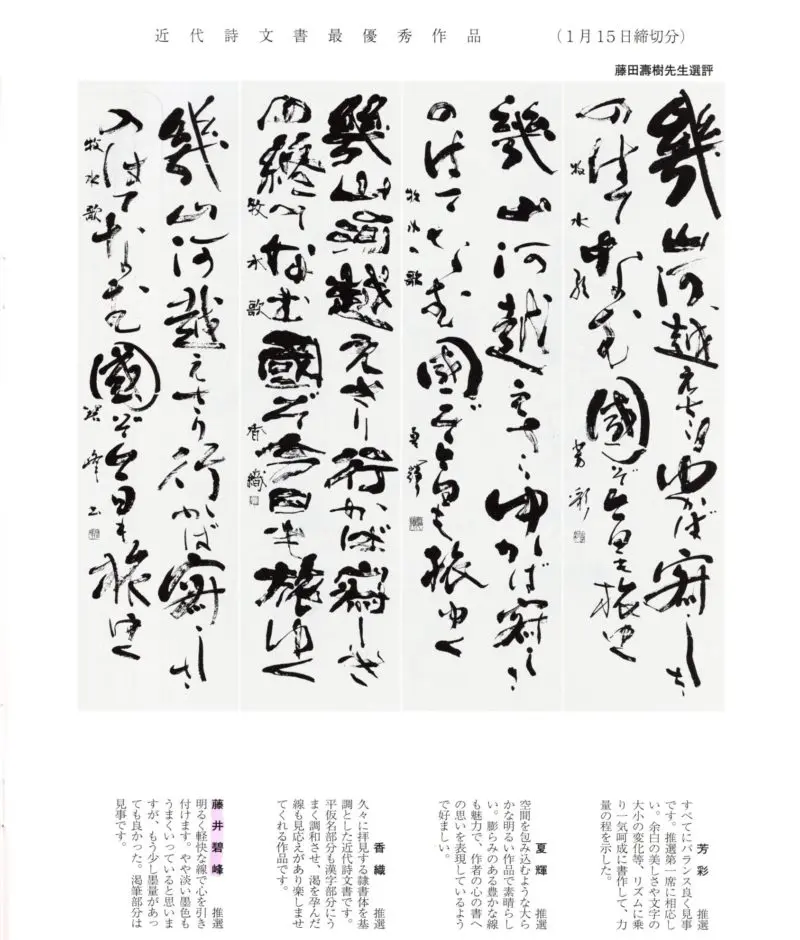 近代詩文書最優秀作品　（1月15日締切分）
藤田壽樹先生選評
幾山河越えさりゆかば寂しさ
のはてなむ國ぞ今日も旅ゆく
牧水歌　芳彩
幾山河越えさりゆかば寂しさ
のはてなむ國ぞ今日も旅ゆく
牧水の歌　夏輝
幾山河越えさり行かば寂しさ
の終てなむ國ぞ今日も旅ゆく
牧水歌　香織
幾山河越えさり行かば寂しさ
のはてなむ國ぞ今日も旅ゆく
牧水歌　碧峰書
芳彩　推選
すべてにバランス良く見事
です。推選第一席に相応し
い。余白の美しさや文字の
大小の変化等、リズムに乗
り一気呵成に書作して、力
量の程を示した。
夏輝　推選
空間を包み込むような大ら
かな明るい作品で素晴らし
い。膨らみのある豊かな線
も魅力で、作者の心の書へ
の思いを表現しているよう
で好ましい。
香織　推選
久々に拝見する隷書体を基
調とした近代詩文書です。
平仮名部分も漢字部分にう
まく調和させ、渇を孕んだ
線も見応えがあり楽しませ
てくれる作品です。
藤井碧峰　推選
明るく軽快な線で心を引き
付けます。やや淡い墨色も
うまくいっていると思いま
すが、もう少し墨量があっ
ても良かった。渇筆部分は
見事です。